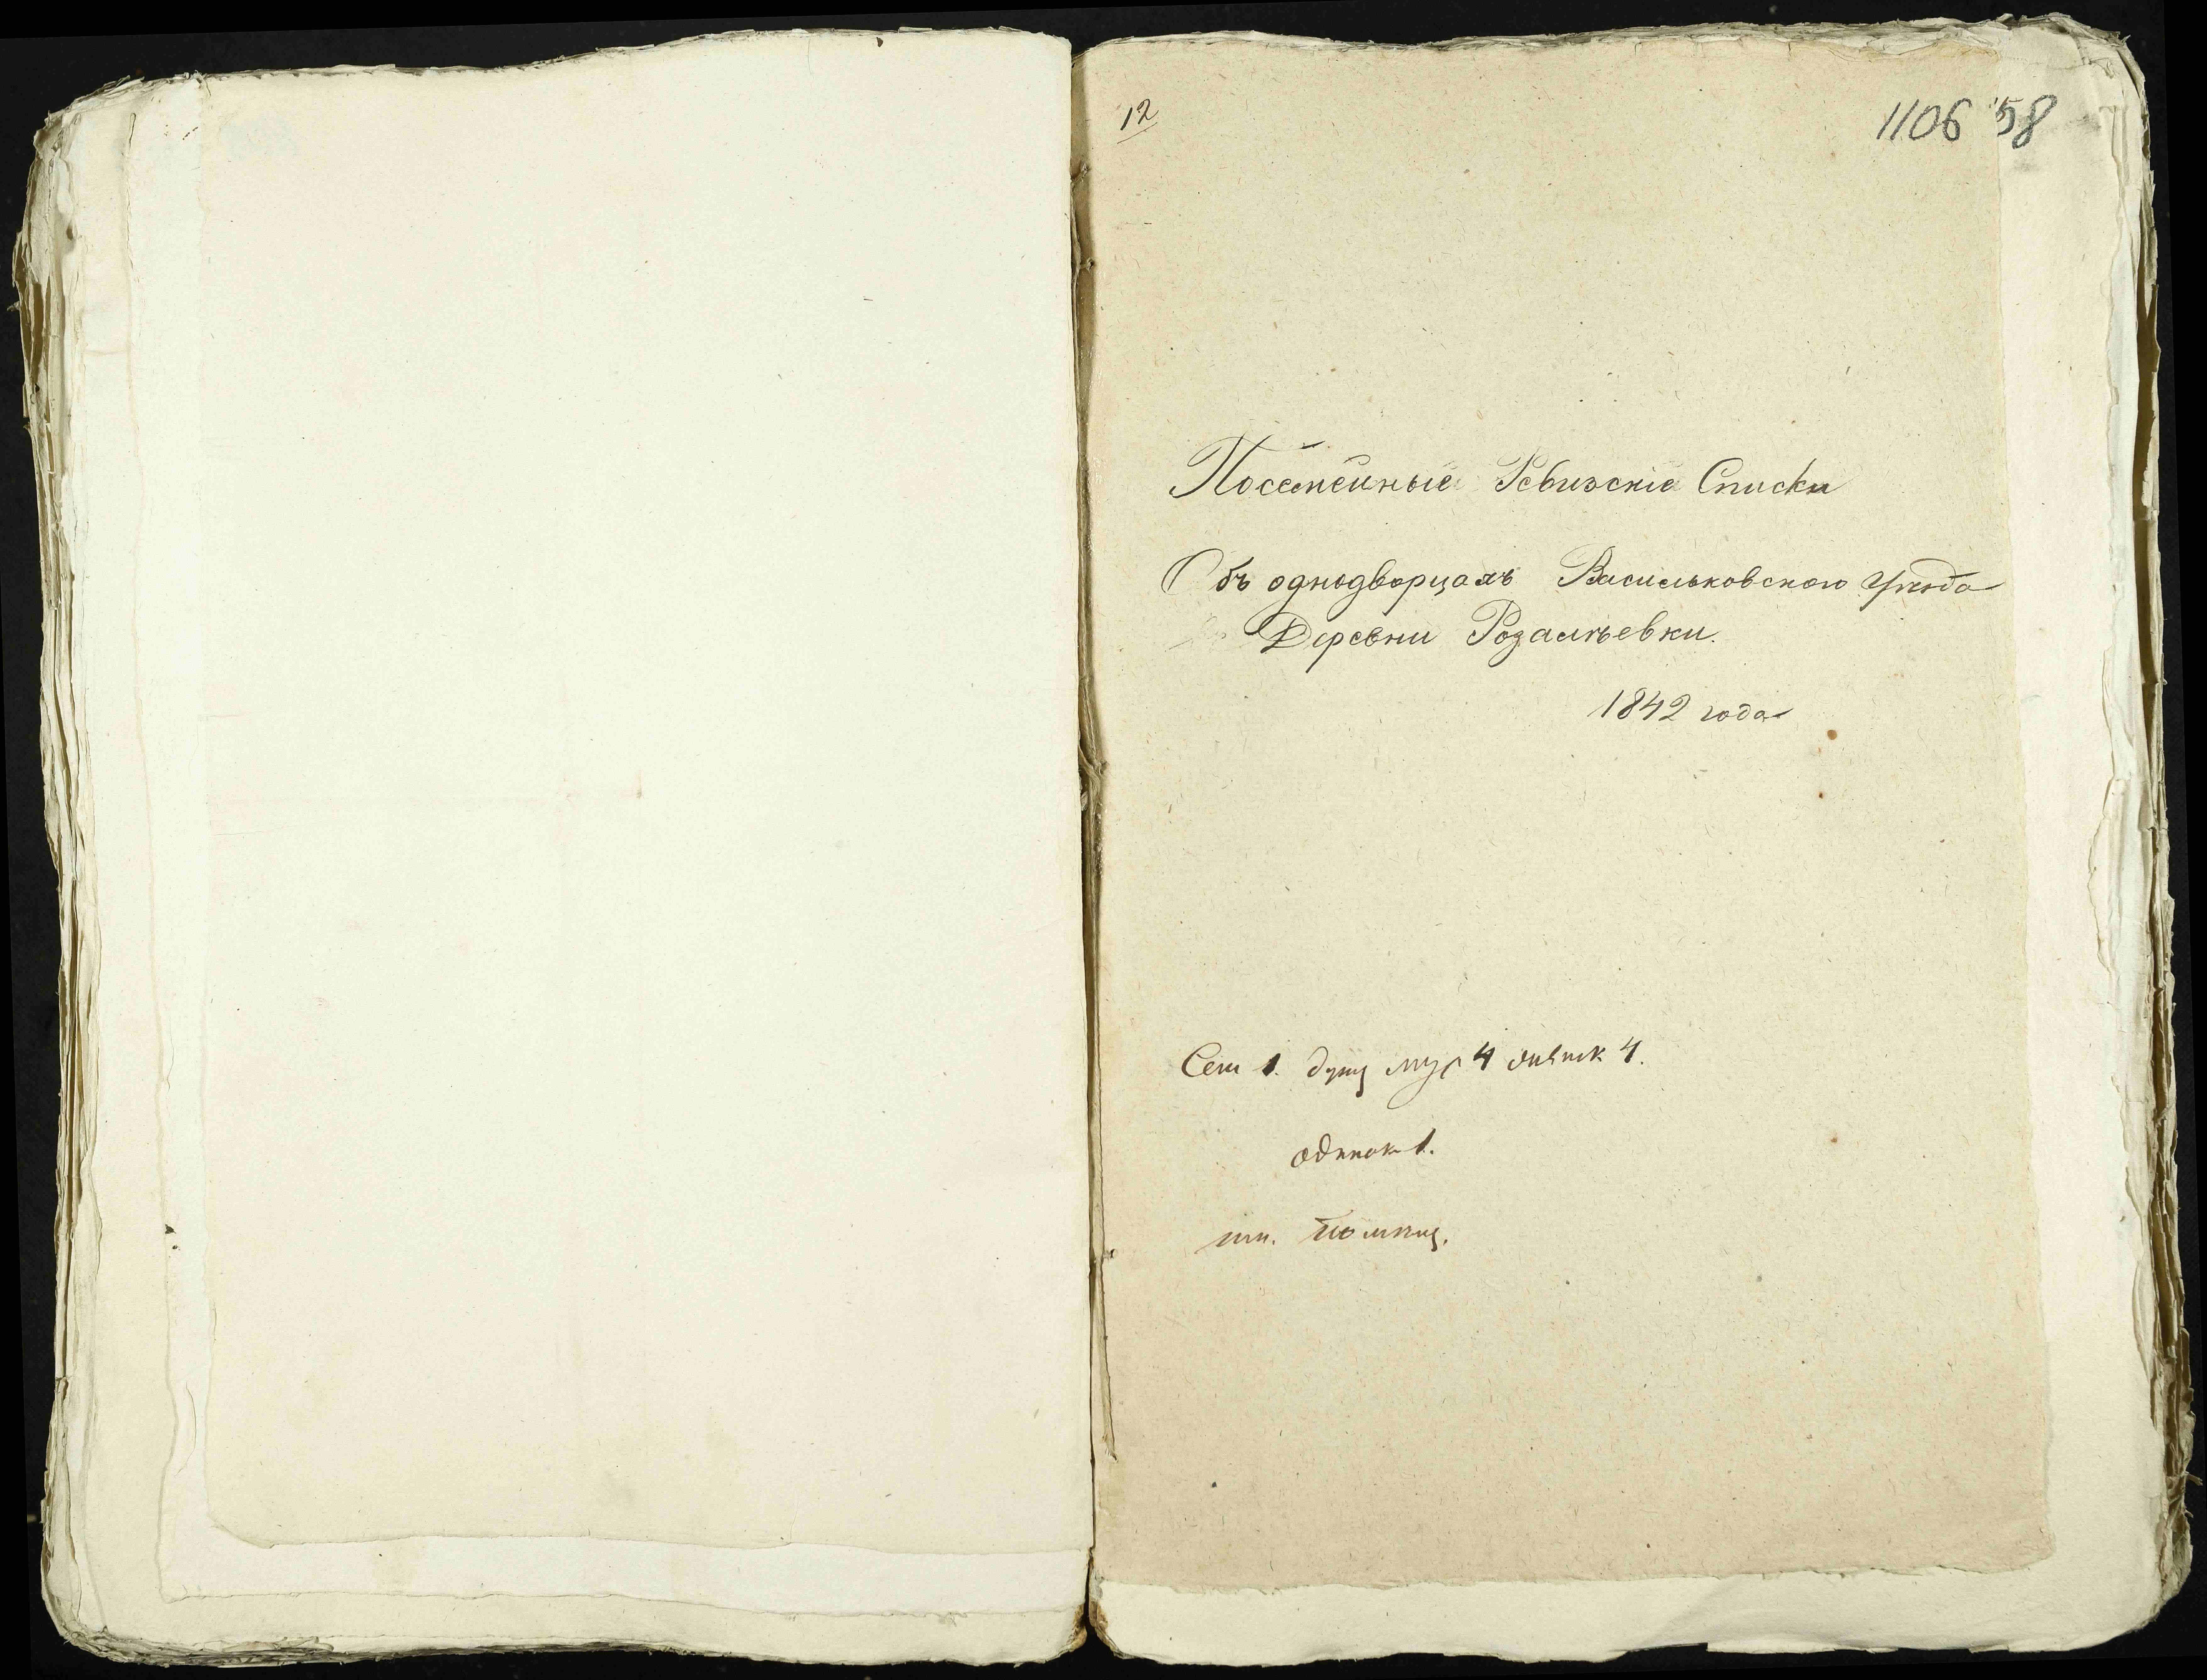 12
1106 58
Посемейные Ревизскіе Списки
Объ однодворцахъ Васильковскаго уѣзда
Деревни Розалъевки.
1842 года
Сем 1. душ муж 4 женск 4.
одинок 1.